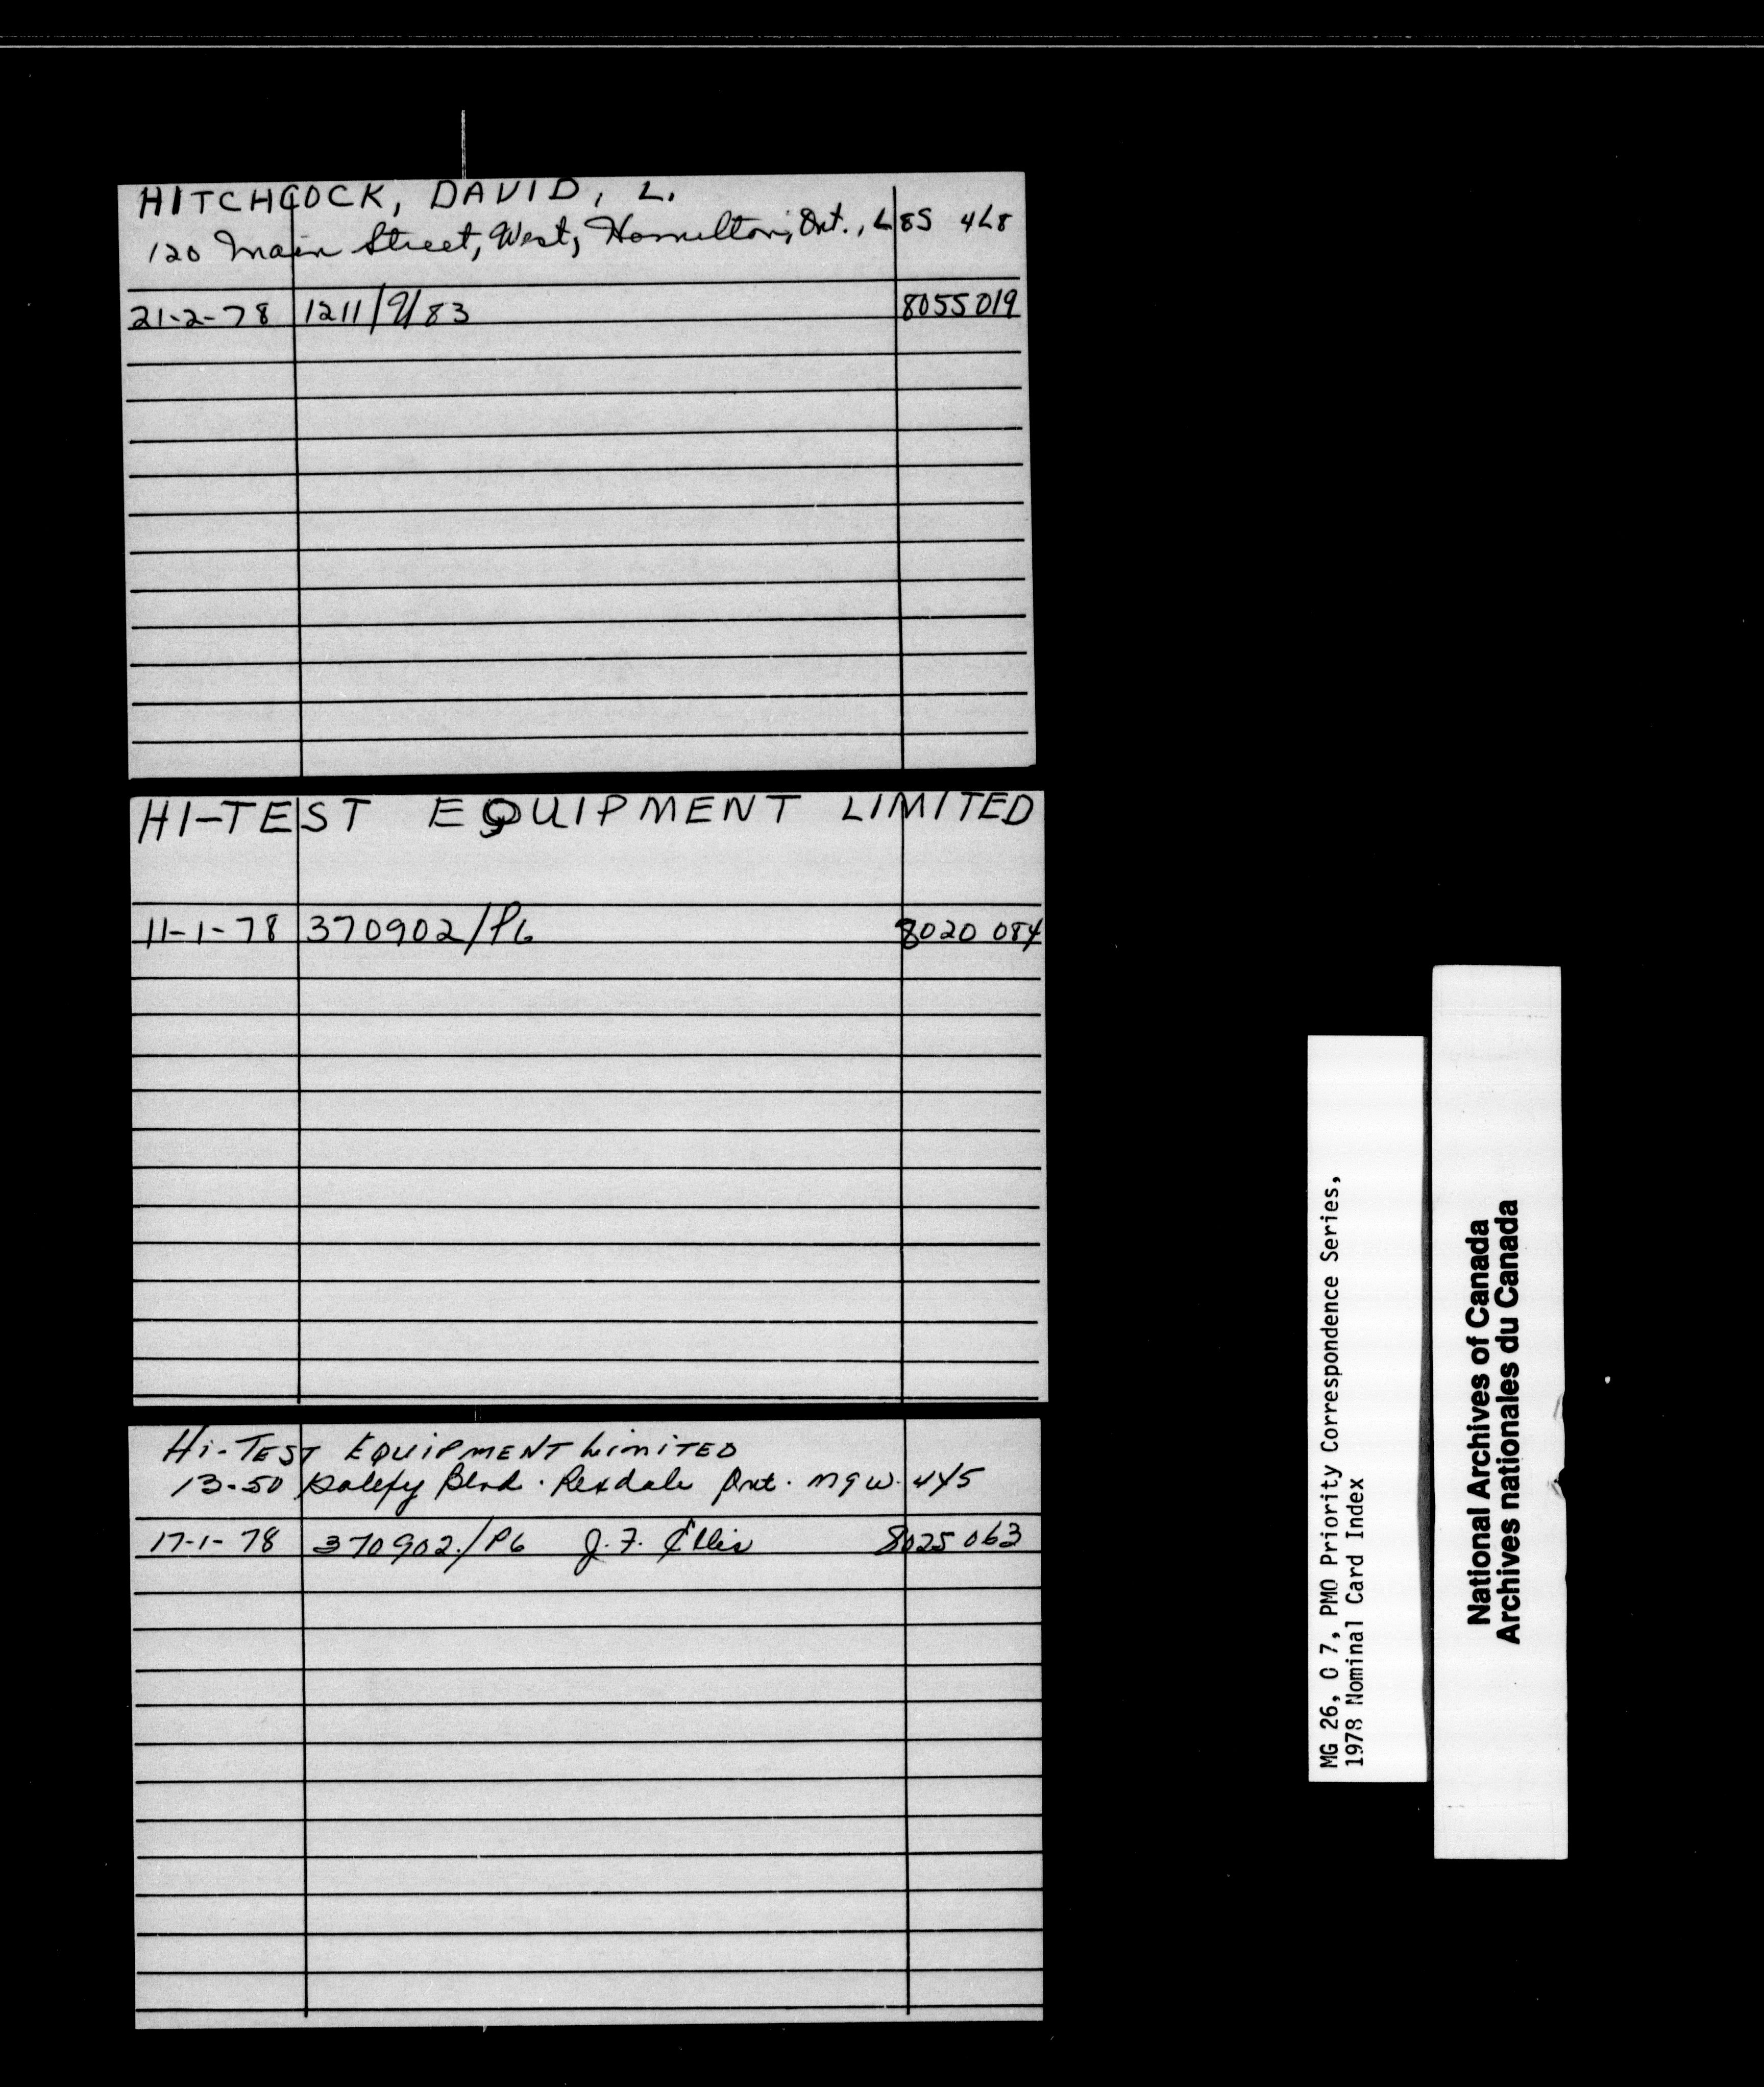 HITCHCOCK, DAVID, L.
120 Main Street, West, Hamilton, Ont., L8S 4L8
21-2-78 1211/U83 8055019
HI-TEST EQUIPMENT LIMITED
11-1-78 370902/P6 8020 084
Hi-TEST EQUIPMENT LimiTED
13-50 Blvd. Rexdale Ont. M9W. 4Y5
17-1-78 370902./P6 J.F. Ellis 8025 063
MG 26, O 7, PMO Priority Correspondence Series,
1978 Nominal Card Index
National Archives of Canada
Archives nationales du Canada